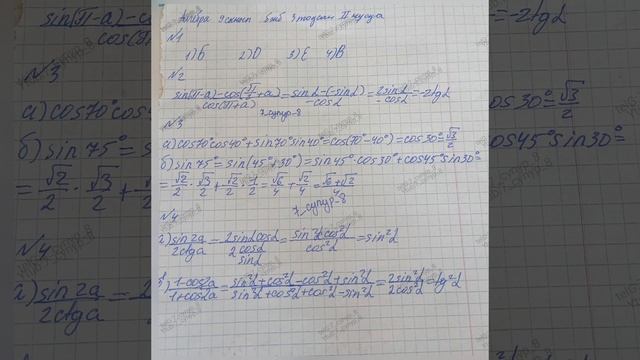 Алгебра 9 сынып 5 тоқсан II нұсқа
№1
1) Б 2) D 3) E 4) B
№2
sin(π-a)-cos(π/2+a)/cos(π+a) = sinα-(-sinα)/-cosα = 2sinα/-cosα = -2tgα
7-супур-8
№3
а) cos70°cos40°+sin70°sin40°=cos(70°-40°)=cos30°=√3/2
б) sin75°=sin(45°+30°)=sin45°·cos30°+cos45°sin30°=
=√2/2·√3/2+√2/2·1/2=√6/4+√2/4=√6+√2/4
7-супур-8
№4
sin2a/2ctga = 2sinαcosα/2cosα/sinα = sin²α·cos²α/cos²α = sin²α
1-cos2a/1+cos2a = sin²α+cos²α-cos²α+sin²α/sin²α+cos²α+cos²α-sin²α = 2sin²α/2cos²α = tg²α